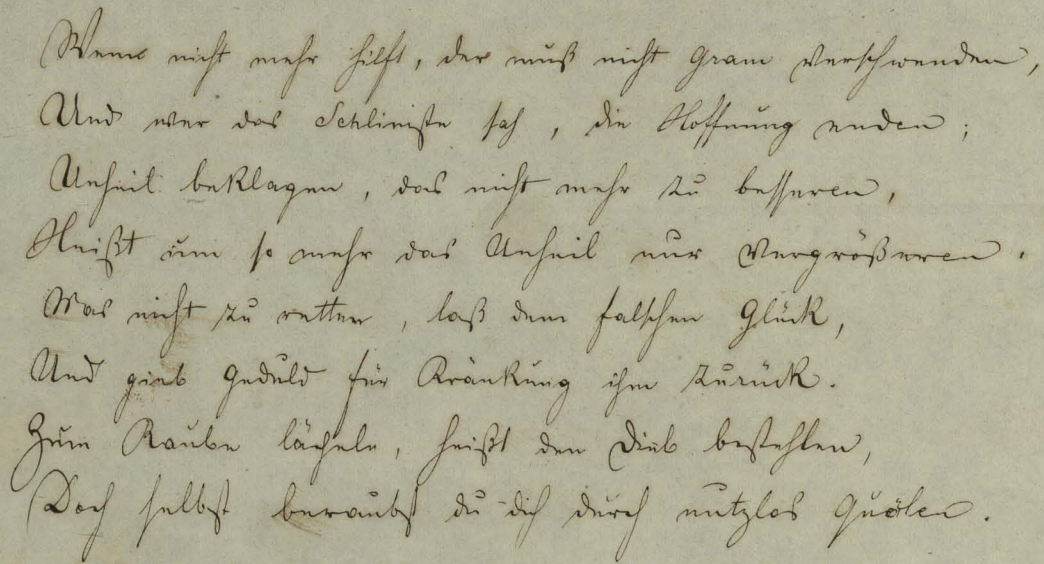 Wenns nicht mehr hilft, der muß nicht Gram verschwenden,
Und wer das Schlimste sah, die Hoffnung enden;
Unheil beklagen, das nicht mehr zu besseren,
Heißt um so mehr das Unheil nur vergrößeren.
Was nicht zu retten, laß dem falschen Glück,
Und gieb Geduld für Kränkung ihm zurück.
Zum Raube lächeln, heißt den Dieb bestehlen,
Doch selbst beraubst du dich durch nutzlos Quälen.